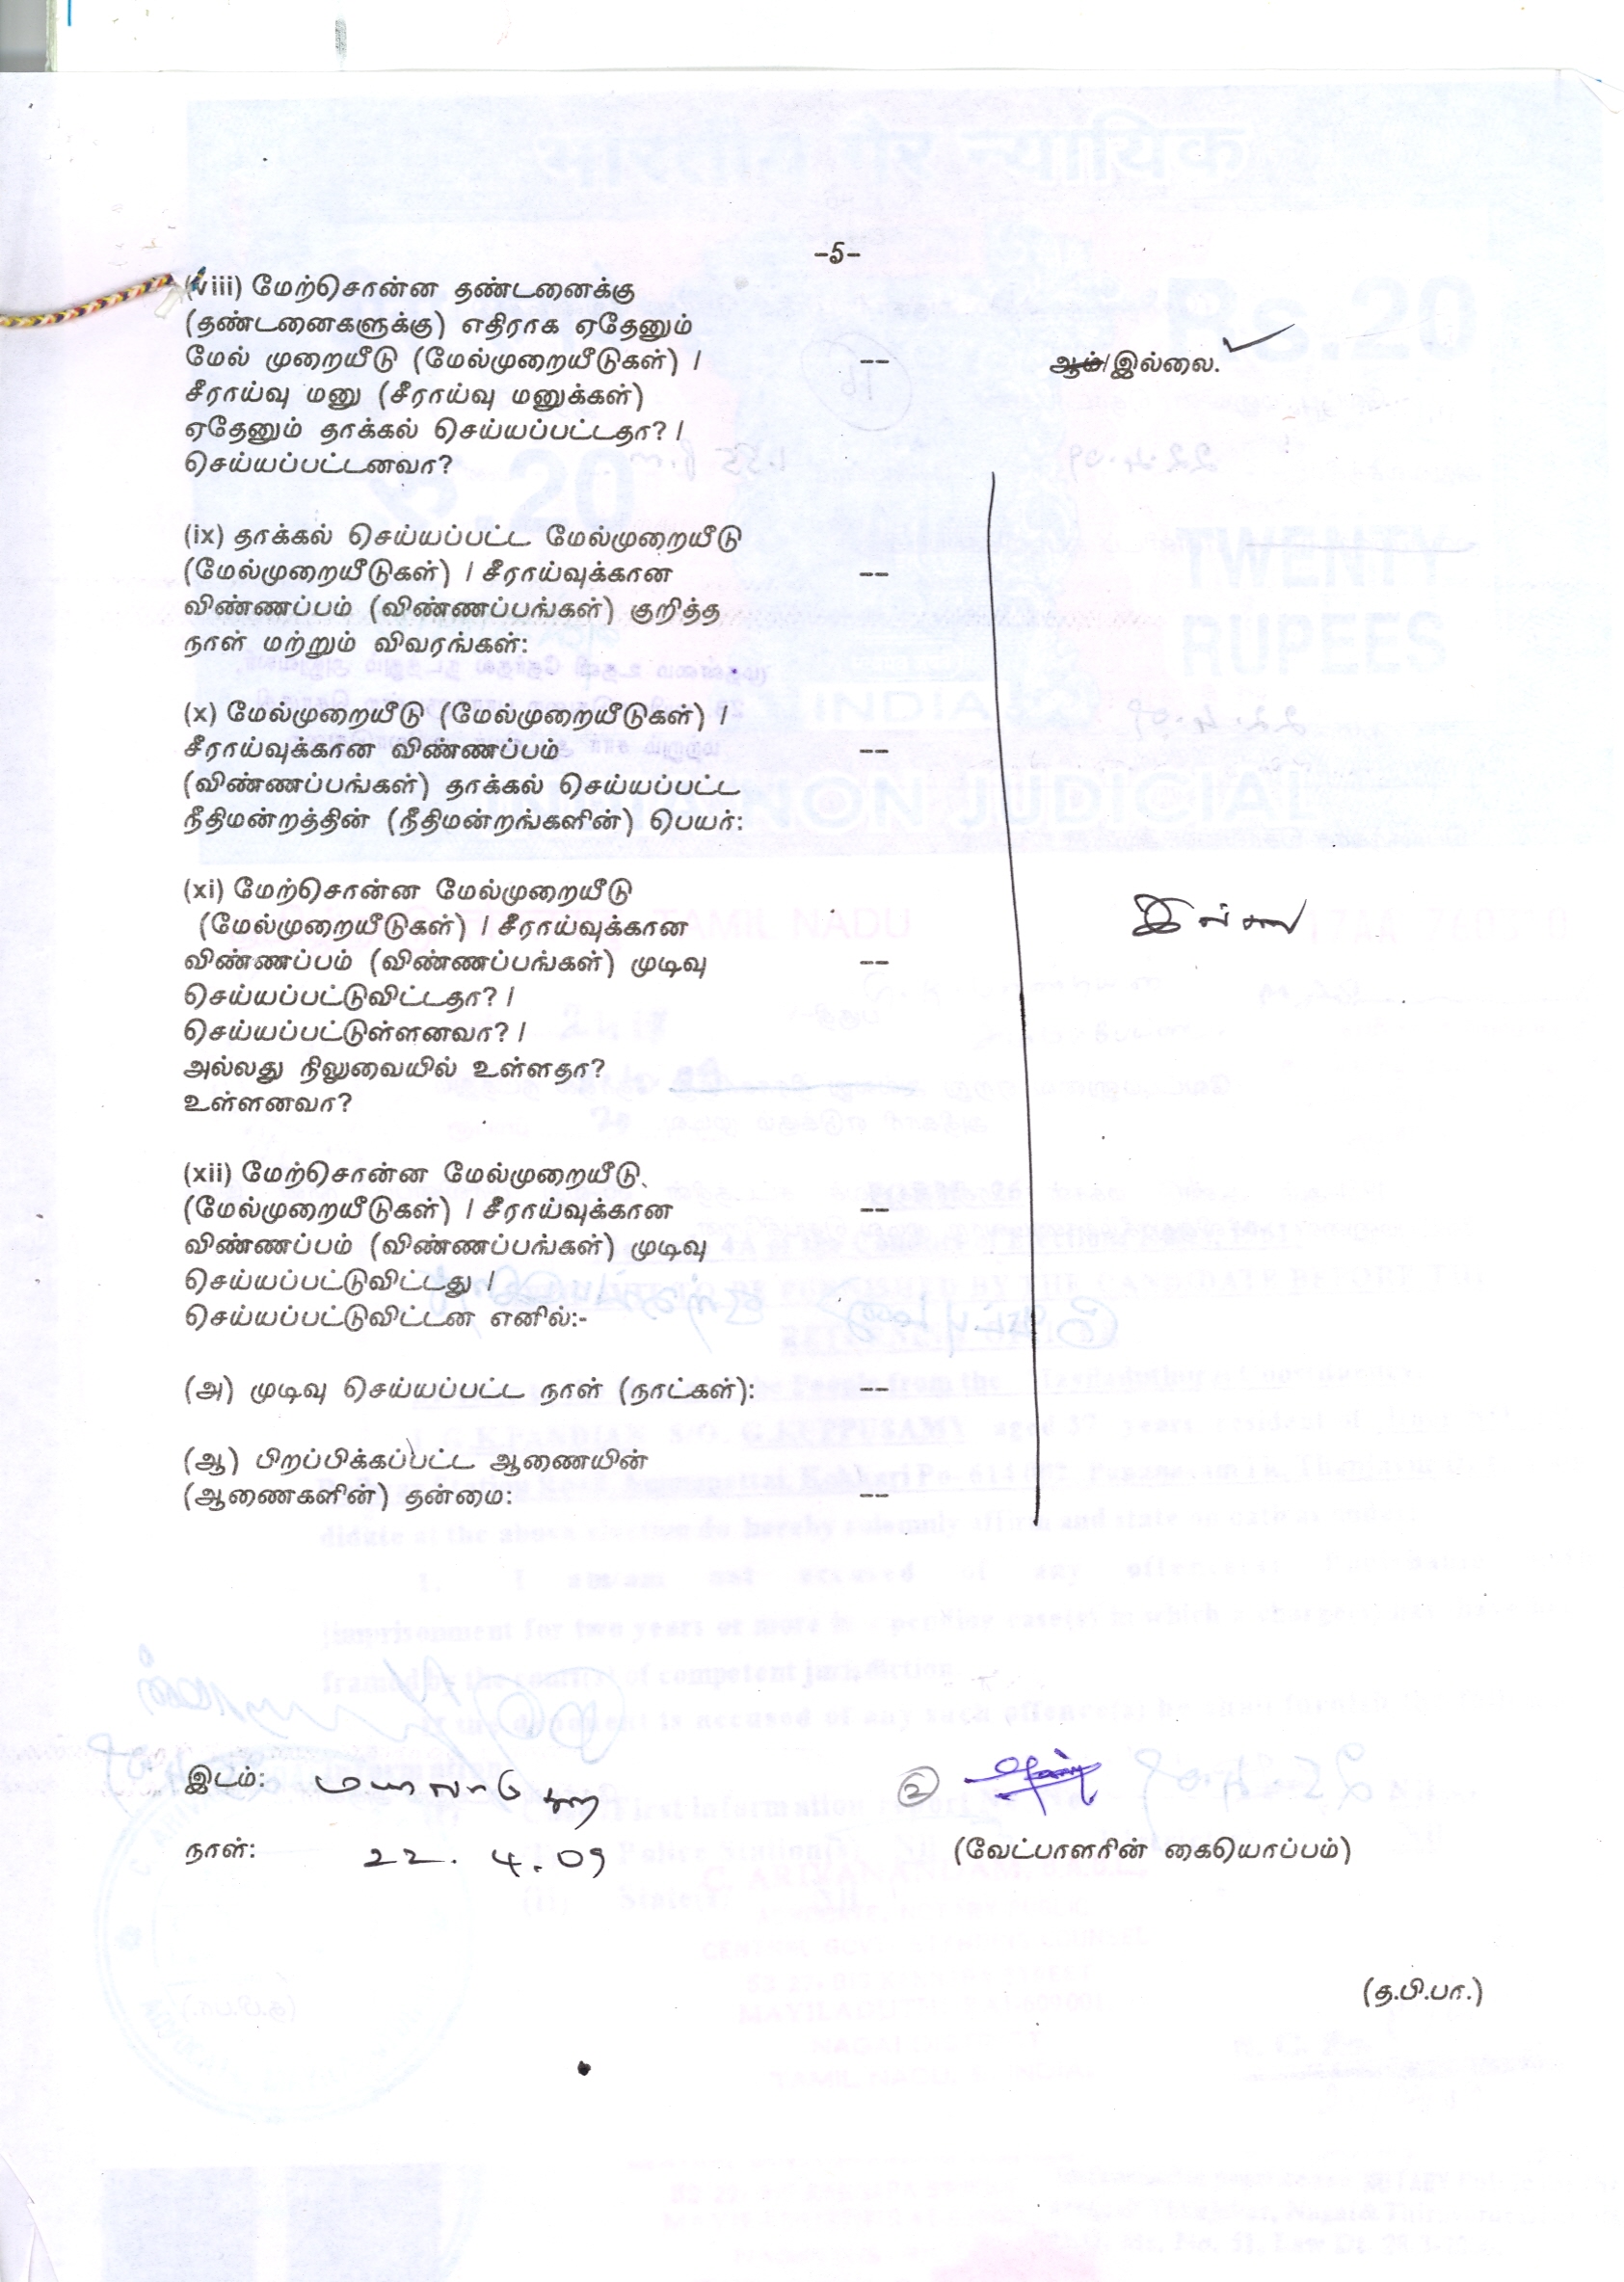 -5-
(viii) மேற்சொன்ன தண்டனைக்கு
(தண்டனைகளுக்கு) எதிராக ஏதேனும்
மேல் முறையீடு (மேல்முறையீடுகள்) / -- ஆம்/இல்லை.
சீராய்வு மனு (சீராய்வு மனுக்கள்)
ஏதேனும் தாக்கல் செய்யப்பட்டதா? /
செய்யப்பட்டனவா?
(ix) தாக்கல் செய்யப்பட்ட மேல்முறையீடு
(மேல்முறையீடுகள்) / சீராய்வுக்கான --
விண்ணப்பம் (விண்ணப்பங்கள்) குறித்த
நாள் மற்றும் விவரங்கள்:
(x) மேல்முறையீடு (மேல்முறையீடுகள்) /
சீராய்வுக்கான விண்ணப்பம் --
(விண்ணப்பங்கள்) தாக்கல் செய்யப்பட்ட
நீதிமன்றத்தின் (நீதிமன்றங்களின்) பெயர்:
(xi) மேற்சொன்ன மேல்முறையீடு
(மேல்முறையீடுகள்) / சீராய்வுக்கான இல்லை
விண்ணப்பம் (விண்ணப்பங்கள்) முடிவு --
செய்யப்பட்டுவிட்டதா? /
செய்யப்பட்டுள்ளனவா? /
அல்லது நிலுவையில் உள்ளதா?
உள்ளனவா?
(xii) மேற்சொன்ன மேல்முறையீடு
(மேல்முறையீடுகள்) / சீராய்வுக்கான --
விண்ணப்பம் (விண்ணப்பங்கள்) முடிவு
செய்யப்பட்டுவிட்டது /
செய்யப்பட்டுவிட்டன எனில்:-
(அ) முடிவு செய்யப்பட்ட நாள் (நாட்கள்): --
(ஆ) பிறப்பிக்கப்பட்ட ஆணையின்
(ஆணைகளின்) தன்மை: --
இடம்: மயிலாடுதுறை
நாள்: 22.4.09 (வேட்பாளரின் கையொப்பம்)
(த.பி.பா.)